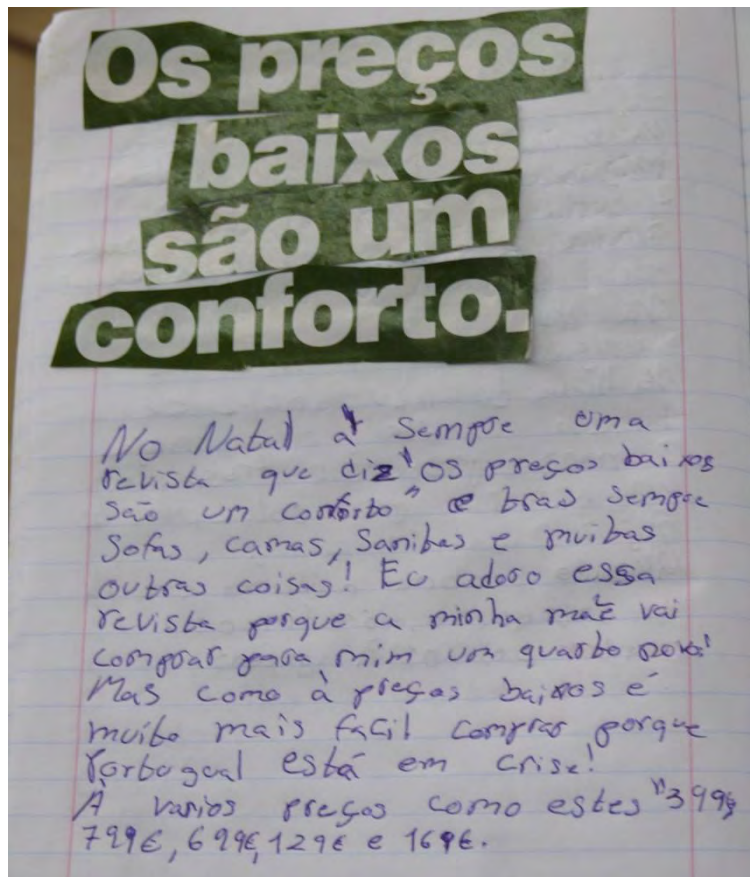 Os preços
baixos
são um
conforto.
No Natal à sempre uma
revista que diz "os preços baixos
são um conforto" e tras sempre
sofas, camas, sanitas e muitas
outras coisas! Eu adoro essa
revista porque a minha mãe vai
comprar para mim um quarto novo!
Mas como à preços baixos é
muito mais facil comprar porque
Portugal está em crise!
À varios preços como estes "399€
799€, 699€, 129€ e 169€.